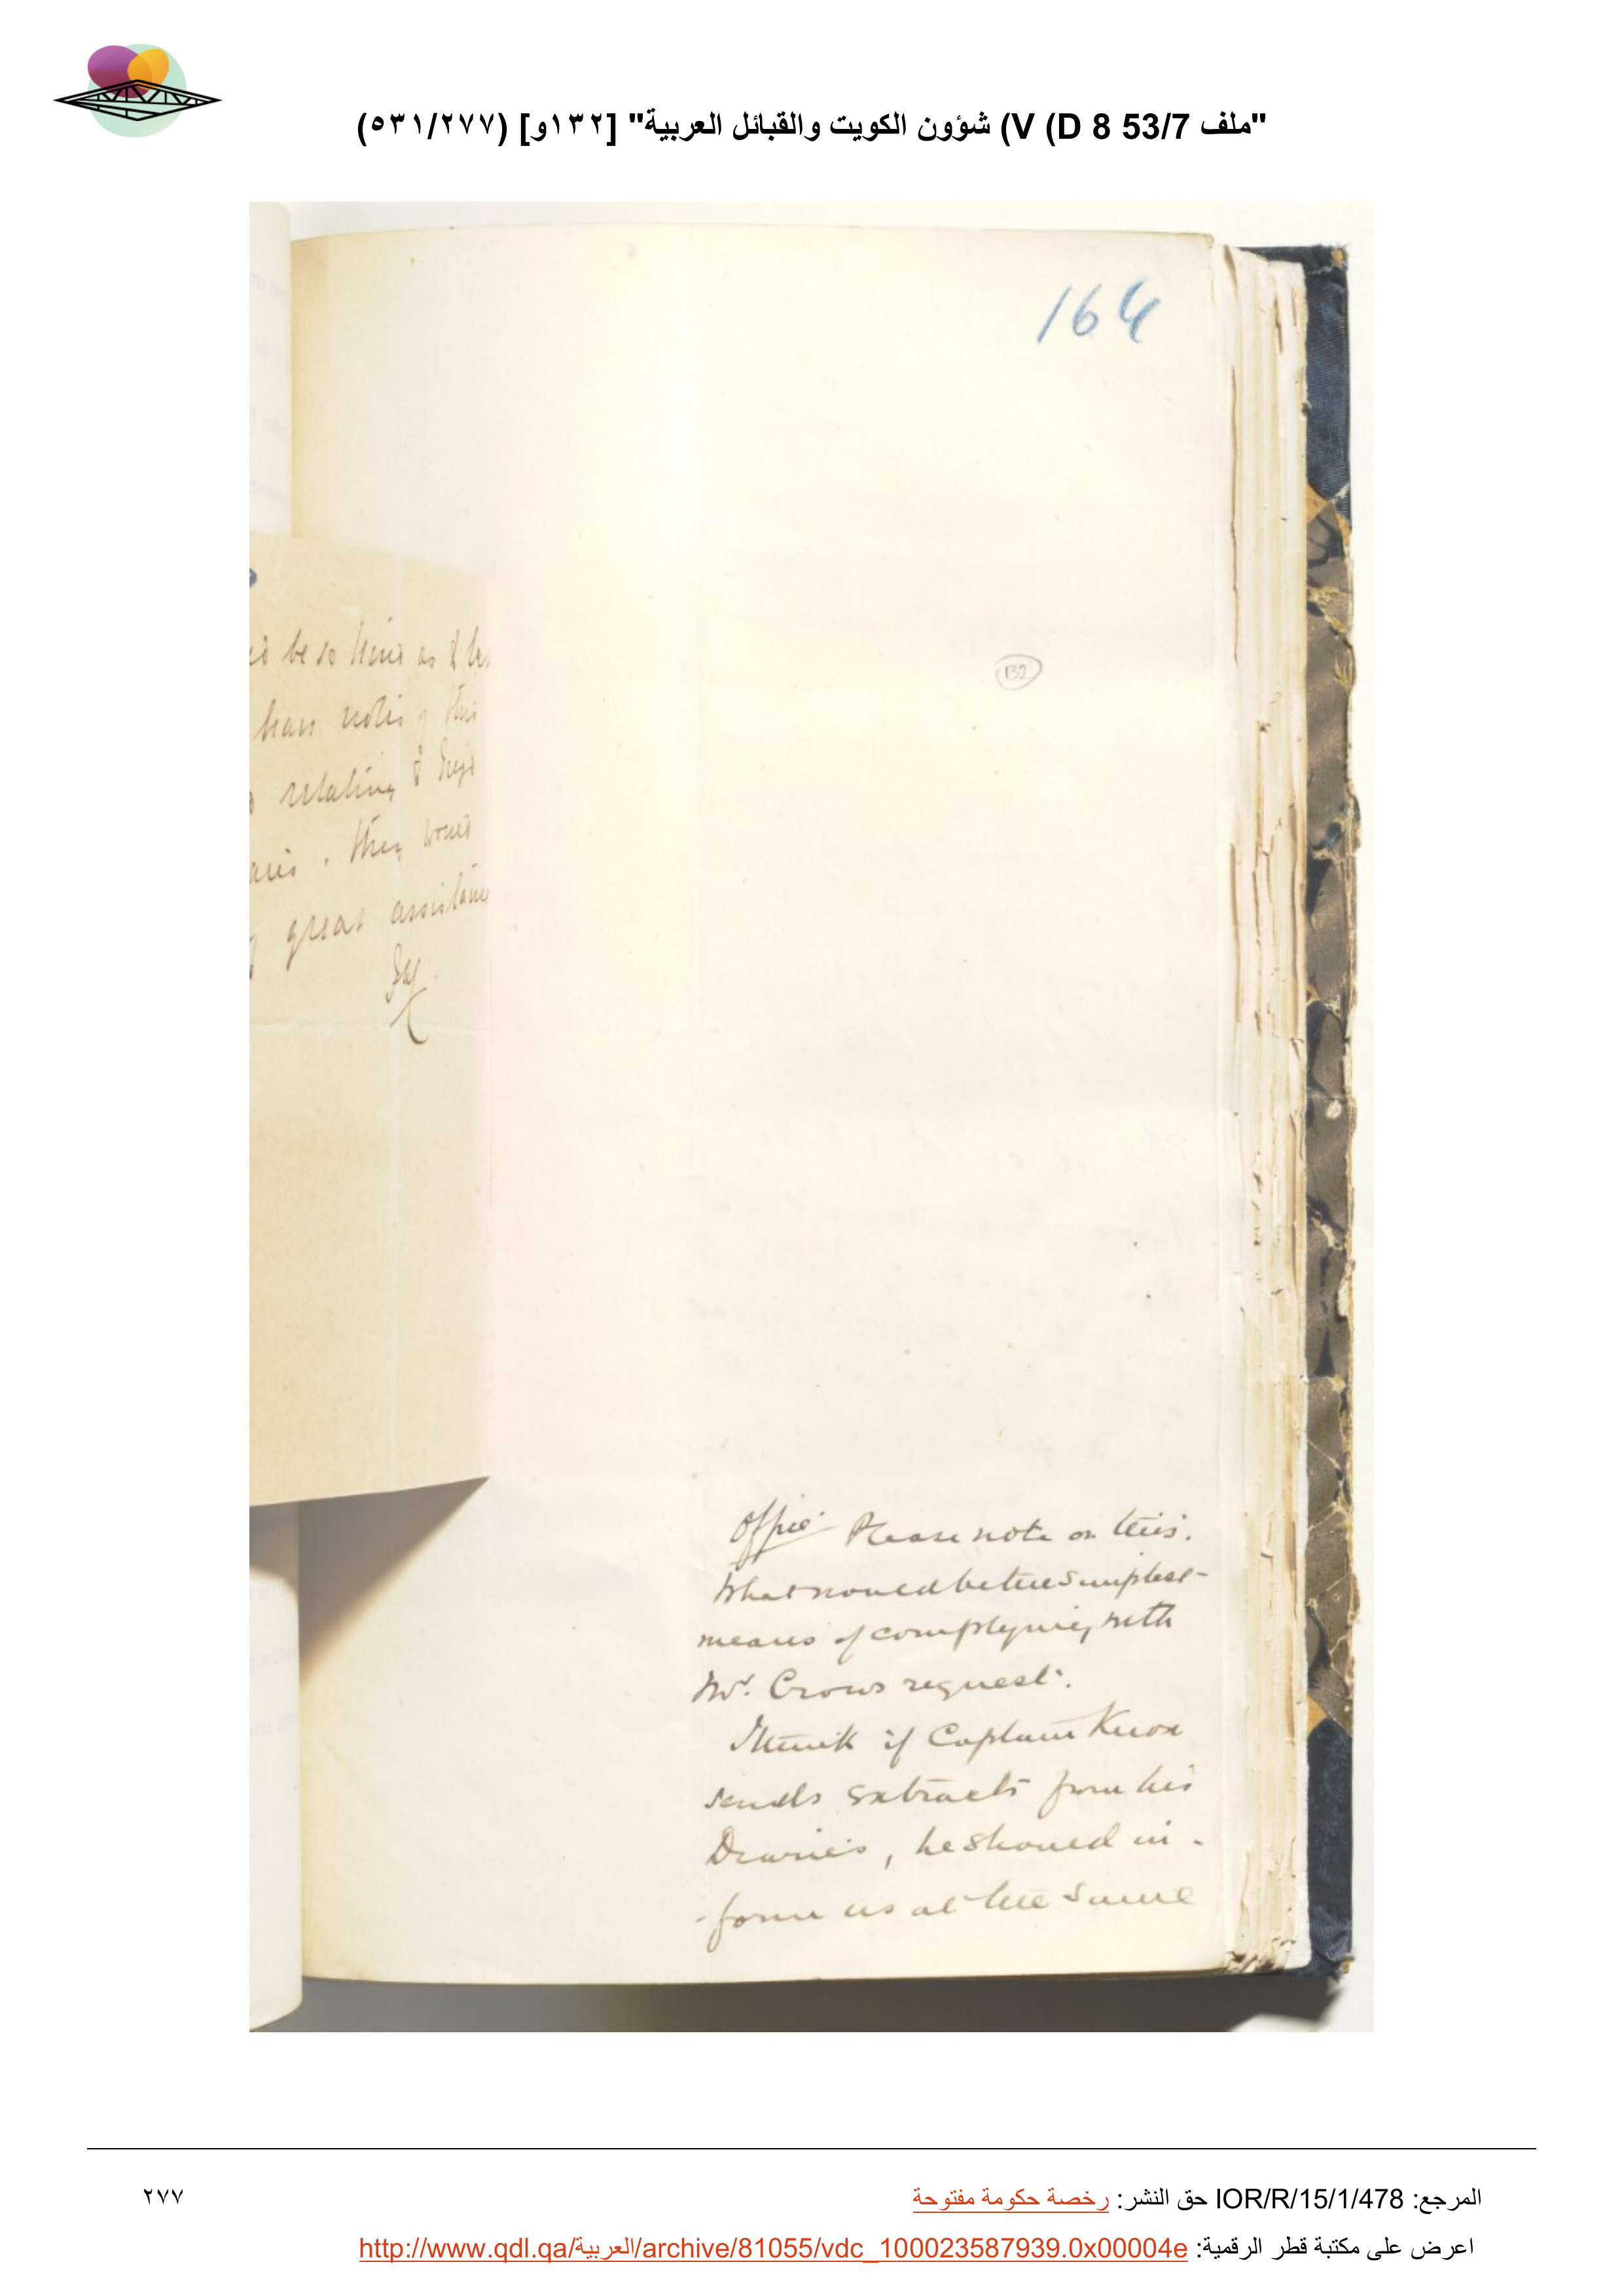 "ملف 53/7 V (D 8) شؤون الكويت والقبائل العربية" [١٣٢و] (٥٣١/٢٧٧)
164
132
be so kind as to
have notes of this
relating to Nejd
they would
great assistance
Office Please note on this.
What would be the simplest
means of complying with
Mr. Crows request.
I think if Captain Knox
sends extracts from his
Diaries, he should in-
-form us at the same
المرجع: IOR/R/15/1/478 حق النشر: رخصة حكومة مفتوحة
٢٧٧
اعرض على مكتبة قطر الرقمية: http://www.qdl.qa/العربية/archive/81055/vdc_100023587939.0x00004e